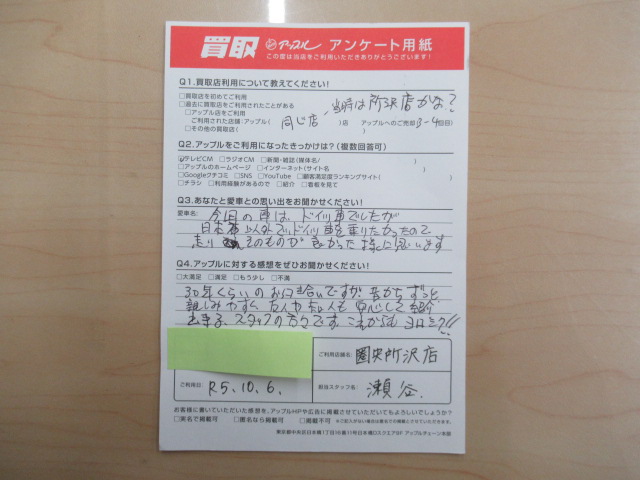 買取 アップル アンケート用紙
この度は当店をご利用いただきありがとうございます!
Q1.買取店利用について教えてください!
□買取店を初めてご利用
□過去に買取店をご利用されたことがある
当時は所沢店かな?
□アップル店をご利用
ご利用された店舗:アップル( 同じ店 )店 アップルへのご売却3-4回目)
□その他の買取店( )
Q2.アップルをご利用になったきっかけは?(複数回答可)
☑テレビCM □ラジオCM □新聞・雑誌(媒体名/ )
□アップルのホームページ □インターネット(サイト名 )
□Googleクチコミ □SNS □YouTube □顧客満足度ランキングサイト( )
□チラシ □利用経験があるので □紹介 □看板を見て
Q3.あなたと愛車との思い出をお聞かせください!
愛車名:今回の車は、ドイツ車でしたが
日本車以外でドイツ車を乗りたかったので
走りそのものが良かった様に思います
Q4.アップルに対する感想をぜひお聞かせください!
□大満足 □満足 □もう少し □不満
30年くらいのお付き合いですが、昔からずっと
親しみやすく、友人や知人も安心して紹介
出来る、スタッフの方々です。これからもヨロシク!!
ご利用店舗名: 圏央所沢店
ご利用日: R5.10.6.
担当スタッフ名: 瀬谷.
お客様に書いていただいた感想を、アップルHPや広告に掲載させていただいてもよろしいでしょうか?
□実名で掲載可 □匿名なら掲載可 □掲載不可 ※ご記入がない場合は匿名での掲載とさせていただきます。
東京都中央区日本橋1丁目16番11号日本橋Dスクエア8F アップルチェーン本部